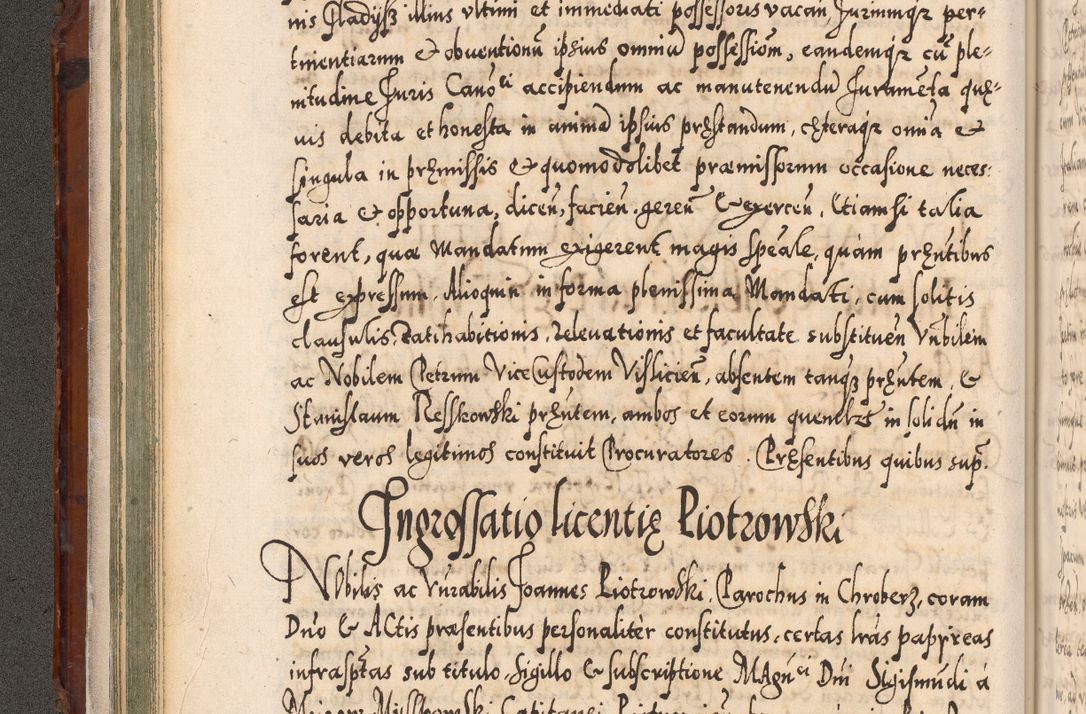 nis Gladysz illius ultimi et immediati possessoris vacan Juriumqȝ per=
tinentiarum & obventionũ ipsius omniũ possessiom, eandemqȝ cũ ple=
nitudine Juris Canoci accipiendum ac manutenendũ Juramẽta quę=
vis debita et honesta in animã ipsius pręstandum, cęteraqȝ omnia &
singula in pręmissis & quomodolibet præmissorum occasione neces:
saria & opportuna, dicen, facien, geren & exercen, Etiamsi talia
forent, quæ Mandatum exigerent magis speãle, quàm pręntibus
est expressum. Alioquin in forma plenissima Mandati, cum solitis
clausulis, ratihabitionis, relevationis et facultate substituen Vnbilem
ac Nobilem Petrum Vice Custodem Vislicien, absentem tanqȝ pręntem, &
Stanislaum Resskowski pręntem, ambos et eorum quemlbt in solidũ in
suos veros legitimos constituit Procuratores. Pręsentibus quibus sup.
Ingrossatio licentię Piotrowski
Nobilis ac Vnrabilis Joannes Piotrowski, Parochus in Chroberz, coram
Dno & Actis præsentibus personalitèr constitutus, certas lras papyreas
infrasptas sub titulo, Sigillo & subscriptione Magnci Dni Sigismũdi à